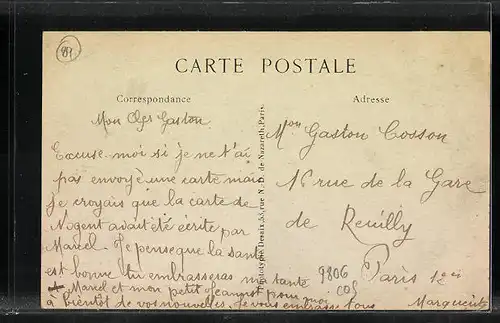 89
CARTE POSTALE
Correspondance
Adresse
Mon Cher Gaston
Excuse moi si je ne t'ai
pas envoyé une carte mais
je croyais que la carte de
Nogent avait été écrite par
Marcel. Je pense que la santé
est bonne tu embrasseras ma tante
Marcel et mon petit Jeannot pour moi
à bientôt de vos nouvelles. Je vous embrasse tous
Marguerite
Phototypie Desaix, 33, rue N.-D. de Nazareth, Paris.
Mon Gaston Cosson
16 rue de la Gare
de Reuilly
Paris 12e
9806
COS